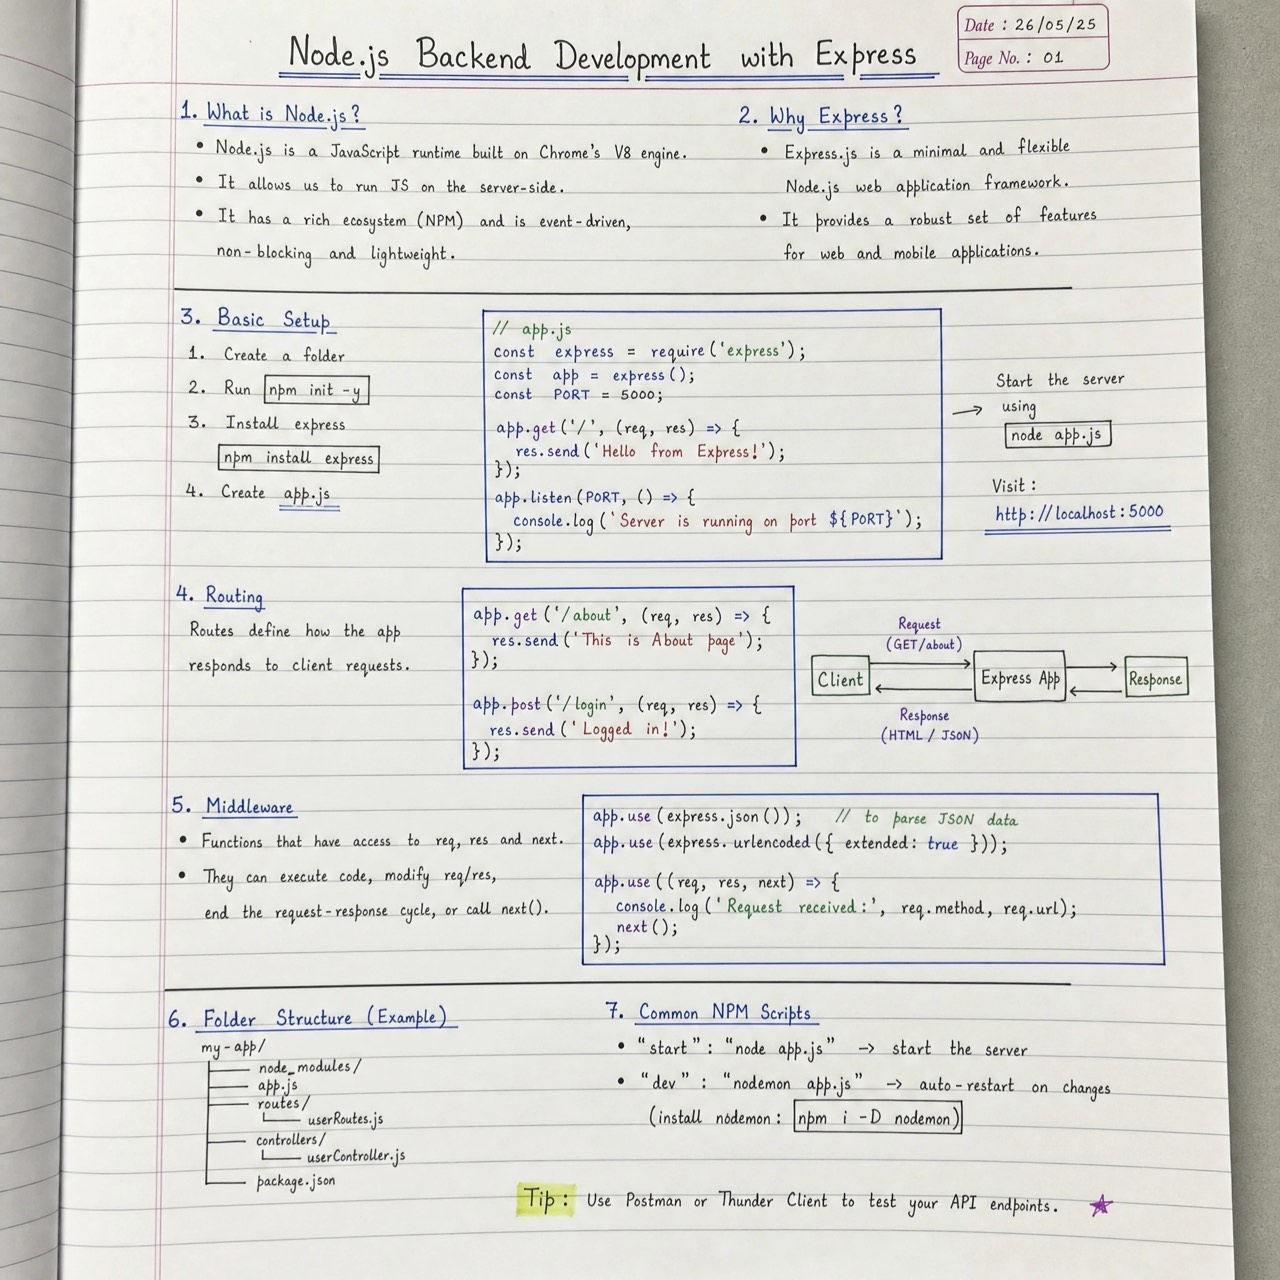 Date : 26/05/25
Page No. : 01
Node.js Backend Development with Express
1. What is Node.js?
• Node.js is a JavaScript runtime built on Chrome's V8 engine.
• It allows us to run JS on the server-side.
• It has a rich ecosystem (NPM) and is event-driven,
non-blocking and lightweight.
2. Why Express?
• Express.js is a minimal and flexible
Node.js web application framework.
• It provides a robust set of features
for web and mobile applications.
3. Basic Setup
1. Create a folder
2. Run npm init -y
3. Install express
npm install express
4. Create app.js
// app.js
const express = require('express');
const app = express();
const PORT = 5000;
app.get('/', (req, res) => {
res.send('Hello from Express!');
});
app.listen(PORT, () => {
console.log('Server is running on port ${PORT}`);
});
→ Start the server
using
node app.js
Visit :
http://localhost:5000
4. Routing
Routes define how the app
responds to client requests.
app.get('/about', (req, res) => {
res.send('This is About page');
});
app.post('/login', (req, res) => {
res.send('Logged in!');
});
Request
(GET/about)
Client
Express App
Response
Response
(HTML / JSON)
5. Middleware
• Functions that have access to req, res and next.
• They can execute code, modify req/res,
end the request-response cycle, or call next().
app.use(express.json()); // to parse JSON data
app.use(express.urlencoded({ extended: true }));
app.use((req, res, next) => {
console.log('Request received:', req.method, req.url);
next();
});
6. Folder Structure (Example)
my-app/
node_modules/
app.js
routes/
userRoutes.js
controllers/
userController.js
package.json
7. Common NPM Scripts
• "start" : "node app.js" → start the server
• "dev" : "nodemon app.js" → auto-restart on changes
(install nodemon: npm i -D nodemon)
Tip : Use Postman or Thunder Client to test your API endpoints.